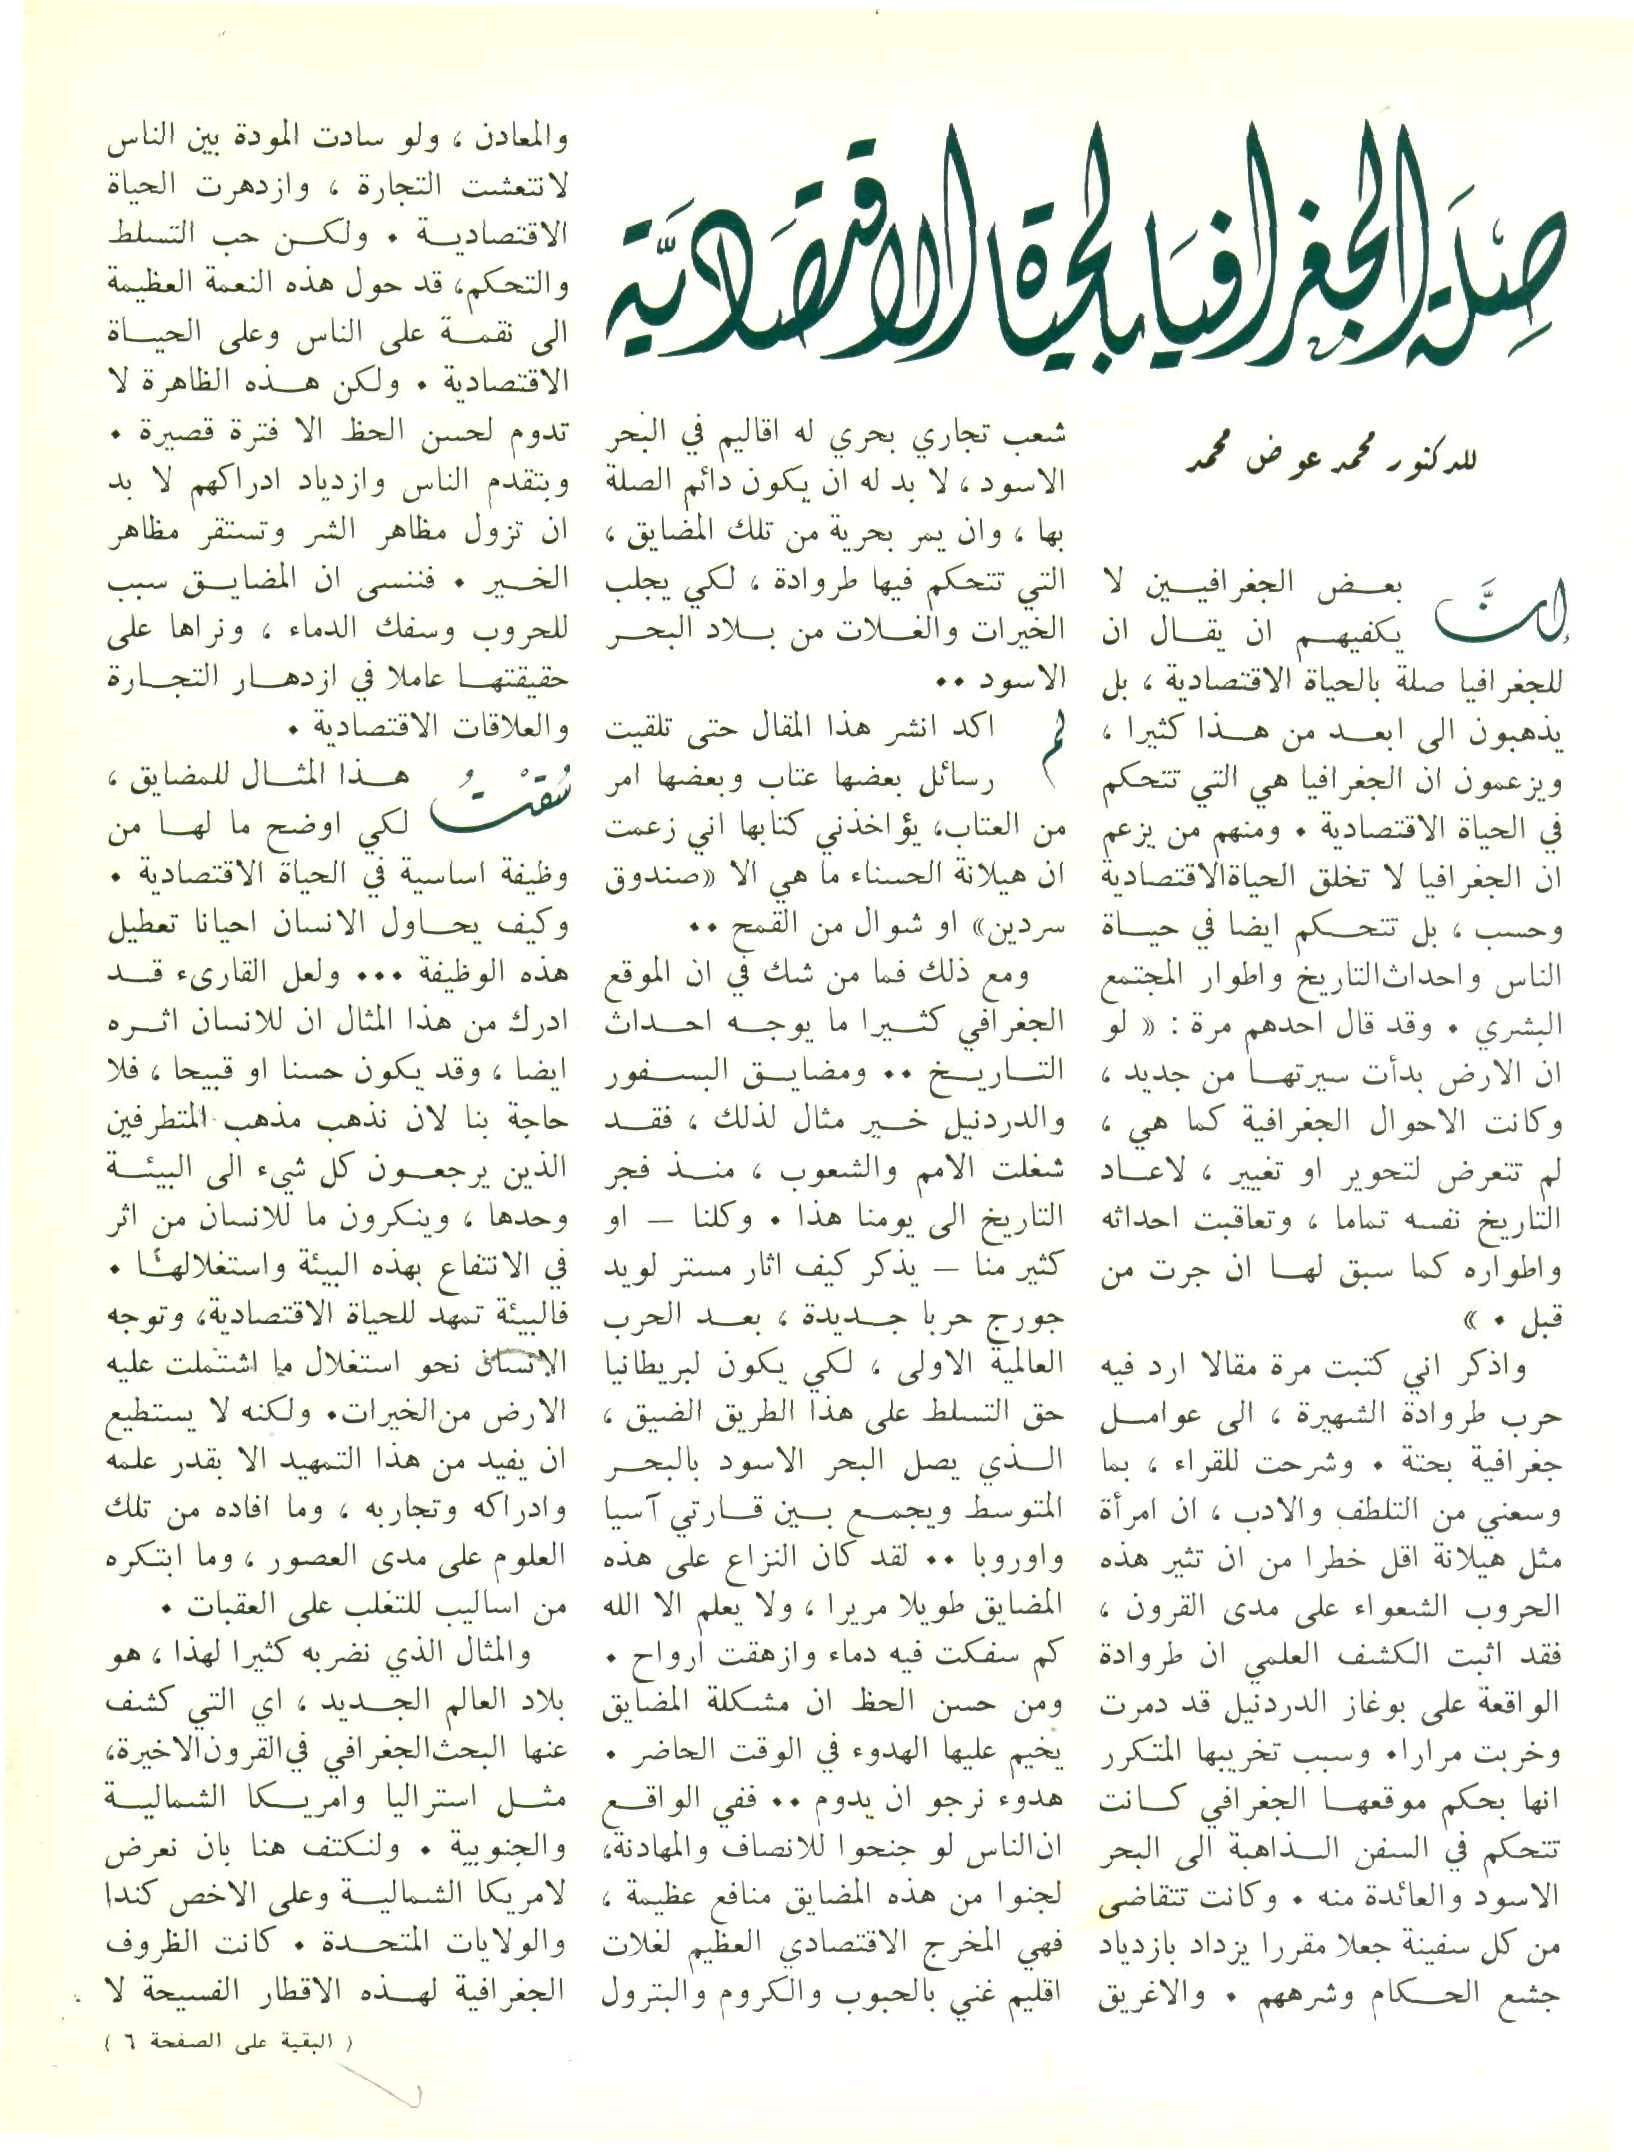 صلة الجغرافيا بالحياة الاقتصادية
للدكتور محمد عوض محمد
إن بعض الجغرافيين لا
يكفيهم ان يقال ان
للجغرافيا صلة بالحياة الاقتصادية ، بل
يذهبون الى ابعد من هذا كثيرا ،
ويزعمون ان الجغرافيا هي التي تتحكم
في الحياة الاقتصادية . ومنهم من يزعم
ان الجغرافيا لا تخلق الحياة الاقتصادية
وحسب ، بل تتحكم ايضا في حياة
الناس واحداث التاريخ واطوار المجتمع
البشري . وقد قال احدهم مرة : « لو
ان الارض بدأت سيرتها من جديد ،
وكانت الاحوال الجغرافية كما هي ،
لم تتعرض لتحوير او تغيير ، لاعاد
التاريخ نفسه تماما ، وتعاقبت احداثه
واطواره كما سبق لها ان جرت من
قبل . »
واذكر اني كتبت مرة مقالا ارد فيه
حرب طروادة الشهيرة ، الى عوامل
جغرافية بحتة . وشرحت للقراء ، بما
وسعني من التلطف والادب ، ان امرأة
مثل هيلانة اقل خطرا من ان تثير هذه
الحروب الشعواء على مدى القرون ،
فقد اثبت الكشف العلمي ان طروادة
الواقعة على بوغاز الدردنيل قد دمرت
وخربت مرارا. وسبب تخريبها المتكرر
انها بحكم موقعها الجغرافي كانت
تتحكم في السفن الذاهبة الى البحر
الاسود والعائدة منه . وكانت تتقاضى
من كل سفينة جعلا مقررا يزداد بازدياد
جشع الحكام وشرههم . والاغريق
شعب تجاري بحري له اقاليم في البحر
الاسود ، لا بد له ان يكون دائم الصلة
بها ، وان يمر بحرية من تلك المضايق ،
التي تتحكم فيها طروادة ، لكي يجلب
الخيرات والغلات من بلاد البحر
الاسود ..
لم اكد انشر هذا المقال حتى تلقيت
رسائل بعضها عتاب وبعضها امر
من العتاب، يؤاخذني كتابها اني زعمت
ان هيلانة الحسناء ما هي الا «صندوق
سردين» او شوال من القمح ..
ومع ذلك فما من شك في ان الموقع
الجغرافي كثيرا ما يوجه احداث
التاريخ .. ومضايق البسفور
والدردنيل خير مثال لذلك ، فقد
شغلت الامم والشعوب ، منذ فجر
التاريخ الى يومنا هذا . وكلنا – او
كثير منا – يذكر كيف اثار مستر لويد
جورج حربا جديدة ، بعد الحرب
العالمية الاولى ، لكي يكون لبريطانيا
حق التسلط على هذا الطريق الضيق ،
الذي يصل البحر الاسود بالبحر
المتوسط ويجمع بين قارتي آسيا
واوروبا .. لقد كان النزاع على هذه
المضايق طويلا مريرا ، ولا يعلم الا الله
كم سفكت فيه دماء وازهقت ارواح .
ومن حسن الحظ ان مشكلة المضايق
يخيم عليها الهدوء في الوقت الحاضر .
هدوء نرجو ان يدوم .. ففي الواقع
ان الناس لو جنحوا للانصاف والمهادنة،
لجنوا من هذه المضايق منافع عظيمة ،
فهي المخرج الاقتصادي العظيم لغلات
اقليم غني بالحبوب والكروم والبترول
والمعادن ، ولو سادت المودة بين الناس
لانتعشت التجارة ، وازدهرت الحياة
الاقتصادية . ولكن حب التسلط
والتحكم، قد حول هذه النعمة العظيمة
الى نقمة على الناس وعلى الحياة
الاقتصادية . ولكن هذه الظاهرة لا
تدوم لحسن الحظ الا فترة قصيرة .
وبتقدم الناس وازدياد ادراكهم لا بد
ان تزول مظاهر الشر وتستقر مظاهر
الخير . فننسى ان المضايق سبب
للحروب وسفك الدماء ، ونراها على
حقيقتها عاملا في ازدهار التجارة
والعلاقات الاقتصادية .
سُقْتُ هذا المثال للمضايق ،
لكي اوضح ما لها من
وظيفة اساسية في الحياة الاقتصادية .
وكيف يحاول الانسان احيانا تعطيل
هذه الوظيفة ... ولعل القارىء قد
ادرك من هذا المثال ان للانسان اثره
ايضا ، وقد يكون حسنا او قبيحا ، فلا
حاجة بنا لان نذهب مذهب المتطرفين
الذين يرجعون كل شيء الى البيئة
وحدها ، وينكرون ما للانسان من اثر
في الانتفاع بهذه البيئة واستغلالها .
فالبيئة تمهد للحياة الاقتصادية، وتوجه
الانسان نحو استغلال ما اشتملت عليه
الارض من الخيرات. ولكنه لا يستطيع
ان يفيد من هذا التمهيد الا بقدر علمه
وادراكه وتجاربه ، وما افاده من تلك
العلوم على مدى العصور ، وما ابتكره
من اساليب للتغلب على العقبات .
والمثال الذي نضربه كثيرا لهذا ، هو
بلاد العالم الجديد ، اي التي كشف
عنها البحث الجغرافي في القرون الاخيرة،
مثل استراليا وامريكا الشمالية
والجنوبية . ولنكتف هنا بان نعرض
لامريكا الشمالية وعلى الاخص كندا
والولايات المتحدة . كانت الظروف
الجغرافية لهذه الاقطار الفسيحة لا
( البقية على الصفحة ٦ )